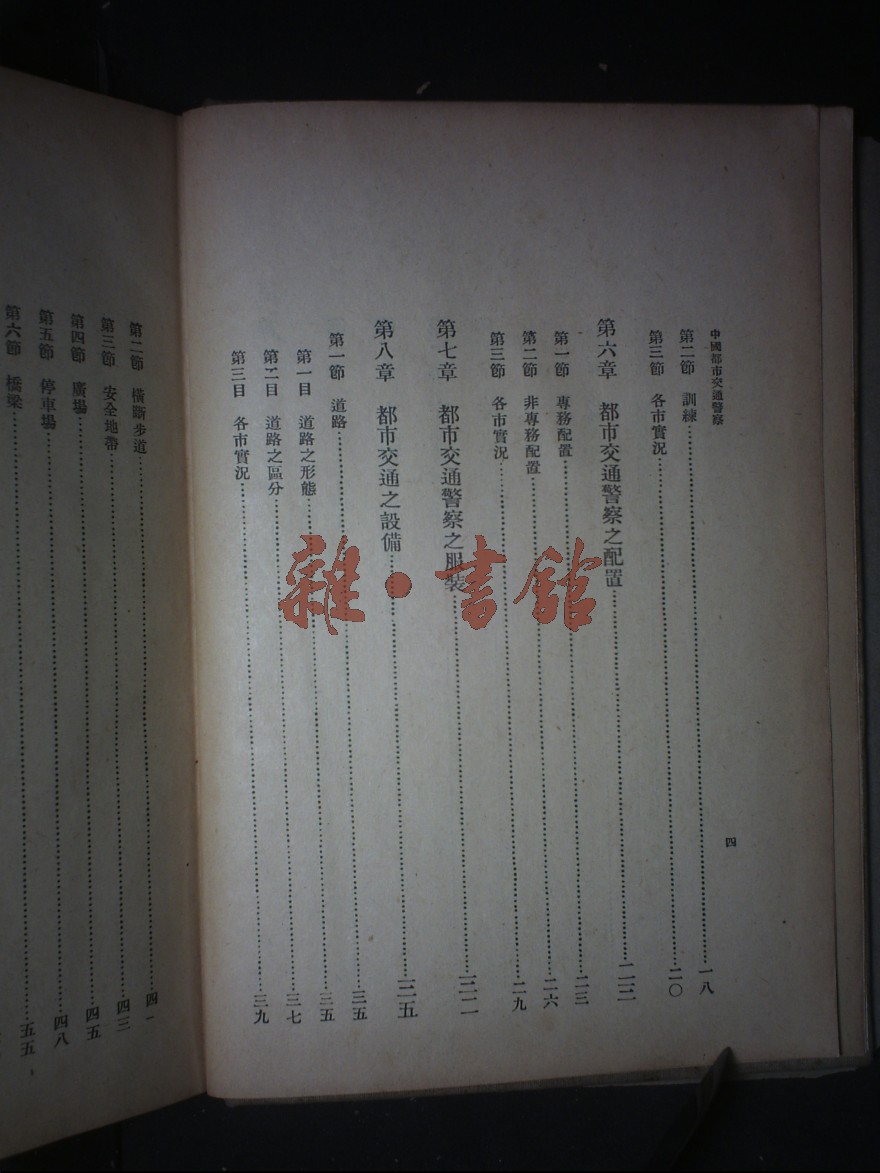 中國都市交通警察
四
第二節 訓練……一八
第三節 各市實況……二〇
第六章 都市交通警察之配置……二三
第一節 專務配置……二三
第二節 非專務配置……二六
第三節 各市實況……二九
第七章 都市交通警察之服裝……三二
第八章 都市交通之設備……三五
第一節 道路……三五
第一目 道路之形態……三五
第二目 道路之區分……三七
第三目 各市實況……三九
第二節 橫斷步道……四一
第三節 安全地帶……四三
第四節 廣場……四五
第五節 停車場……四八
第六節 橋梁……五五
雜·書館